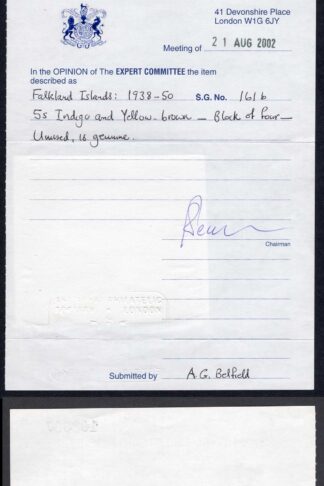 41 Devonshire Place
London W1G 6JY
Meeting of 21 AUG 2002
In the OPINION of The EXPERT COMMITTEE the item
described as
Falkland Islands: 1938-50 S.G. No. 161b
5s Indigo and Yellow-brown — Block of Four —
Unused, is genuine.
Chairman
PHILATELIC
LONDON
Submitted by A.G. Belfield